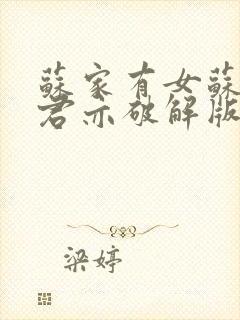 蘇家有女蘇
君亦破解版
梁婷